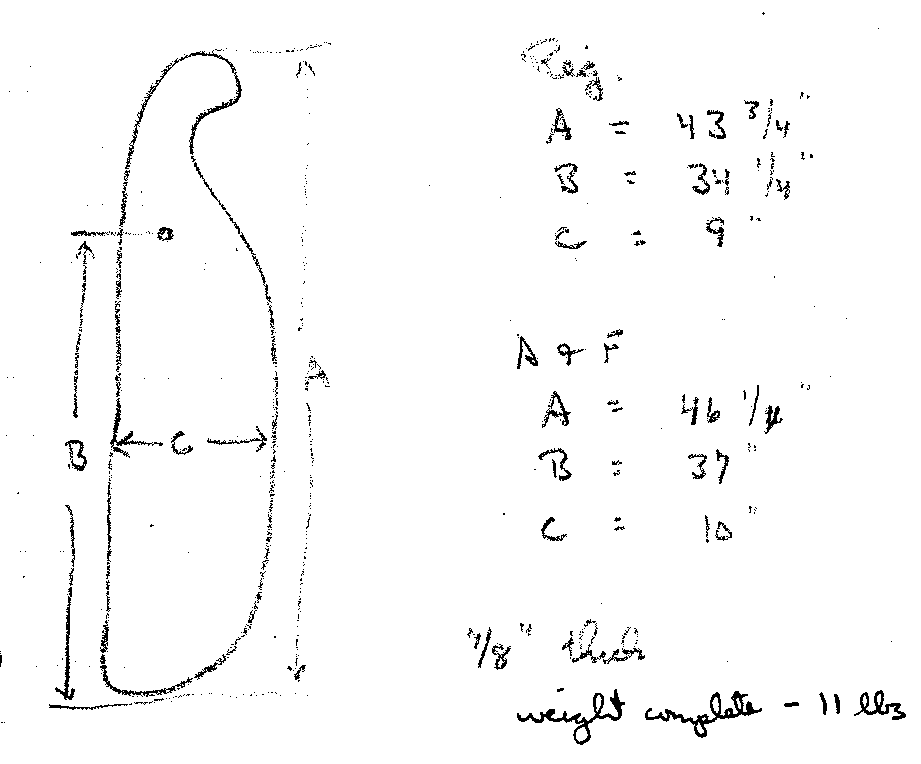 Reg.
A = 43 3/4"
B = 34 1/4"
C = 9"
A
B
C
A & F
A =
B = 37"
C = 10"
7/8" thick
weight complete - 11 lbs